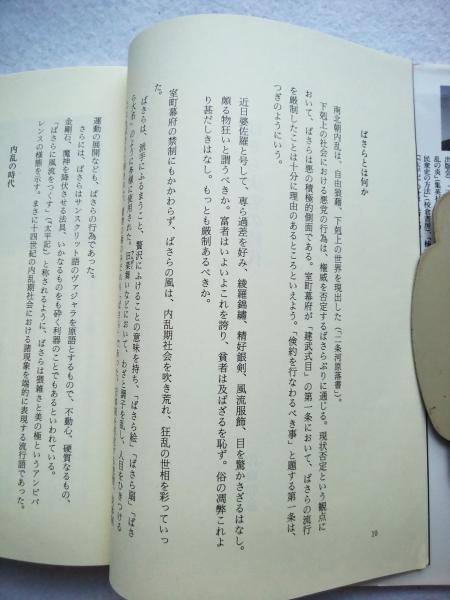 ばさらとは何か
南北朝内乱は、自由狼藉、下剋上の世界を現出した（「二条河原落書」）。
下剋上の社会における悪党の行為は、権威を否定するばさらぶりに通じる。現状否定という観点に
おいて、ばさらは悪の積極的側面である。室町幕府が「建武式目」の第一条において、ばさらの流行
を厳制したことは十分に理由のあるところといえよう。「倹約を行なわるべき事」と題する第一条は、
つぎのようにいう。
近日婆佐羅と号して、専ら過差を好み、綾羅錦繡、精好銀剣、風流服飾、目を驚かさざるはなし。
頗る物狂いと謂うべきか。富者はいよいよこれを誇り、貧者は及ばざるを恥ず。俗の凋弊これよ
り甚だしきはなし。もっとも厳制あるべきか。
室町幕府の禁制にもかかわらず、ばさらの風は、内乱期社会を吹き荒れ、狂乱の世相を彩っていっ
た。
ばさらは、派手にふるまうこと、贅沢にふけることの意味を持ち、「ばさら絵」「ばさら扇」「ばさ
ら大名」のように多様に使用された。田楽舞などにおいて、わざと調子を乱し、人目をひきつける
10
運動の展開なども、ばさらの行為であった。
さらには、ばさらはサンスクリット語のヴァジャラを原語とするもので、不動心、硬質なるもの、
金剛石、魔神を降伏させる法具、いかなるものをも砕く利器のことでもあるといわれている。
「ばさらに風流をつくす」（『太平記』）と称されるように、ばさらは猥雑さと美の極というアンビバ
レンスの様態を示す。まさに十四世紀の内乱期社会における諸現象を端的に表現する流行語であった。
内乱の時代